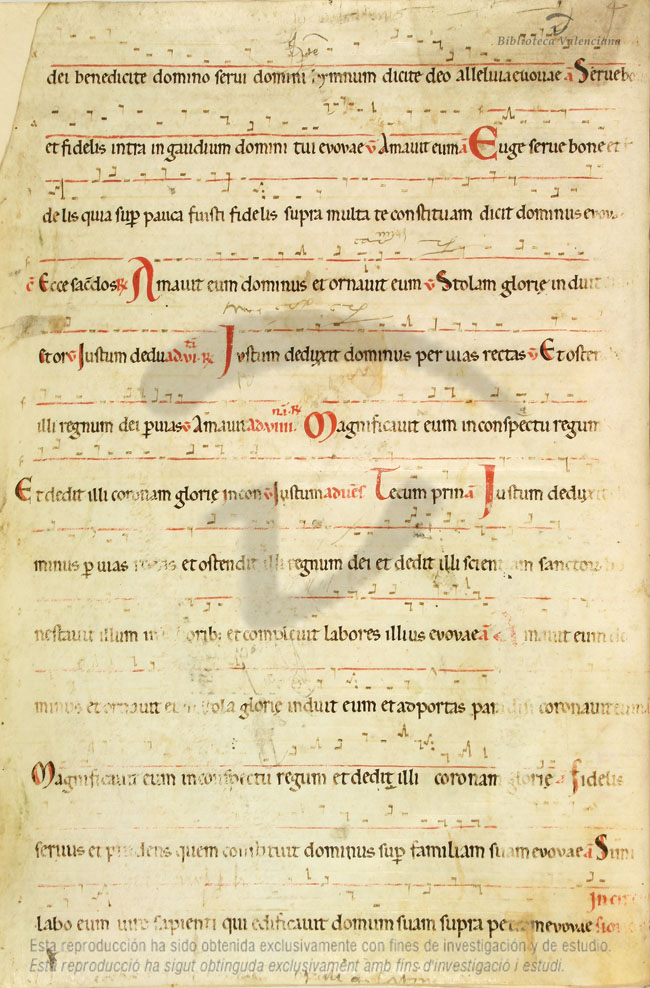 Biblioteca Valenciana
dei benedicite domino serui domini ymnum dicite deo alleluia euouae a Serue bo
et fidelis intra in gaudium domini tui euouae v Amauit eum a Euge serue bone et
delis quia sup pauca fuisti fidelis supra multa te constituam dicit dominus euou
c Ecce sacdos R Amauit eum dominus et ornauit eum v Stolam glorie induit
et or v Justum dedu ad vi R Justum deduxit dominus per uias rectas v Et osten
illi regnum dei p uias v Amauit ad viiii R Magnificauit eum in conspectu regum
Et dedit illi coronam glorie in con v Justum ad ues Tecum prin a Justum deduxit
minus p uias et ostendit illi regnum dei et dedit illi scien sanctor
nestauit illum in borib; et compleuit labores illius euouae a Amauit eum do
minus et ornauit eum stola glorie induit eum et ad portas paradisi coronauit eum
Magnificauit eum in conspectu regum et dedit illi coronam glorie a Fidelis
seruus et prudens quem constituit dominus sup familiam suam euouae a Simi
labo eum uiro sapienti qui edificauit domum suam supra petram euouae
Esta reproducción ha sido obtenida exclusivamente con fines de investigación y de estudio.
Esta reproducció ha sigut obtinguda exclusivament amb fins d'investigació i estudi.